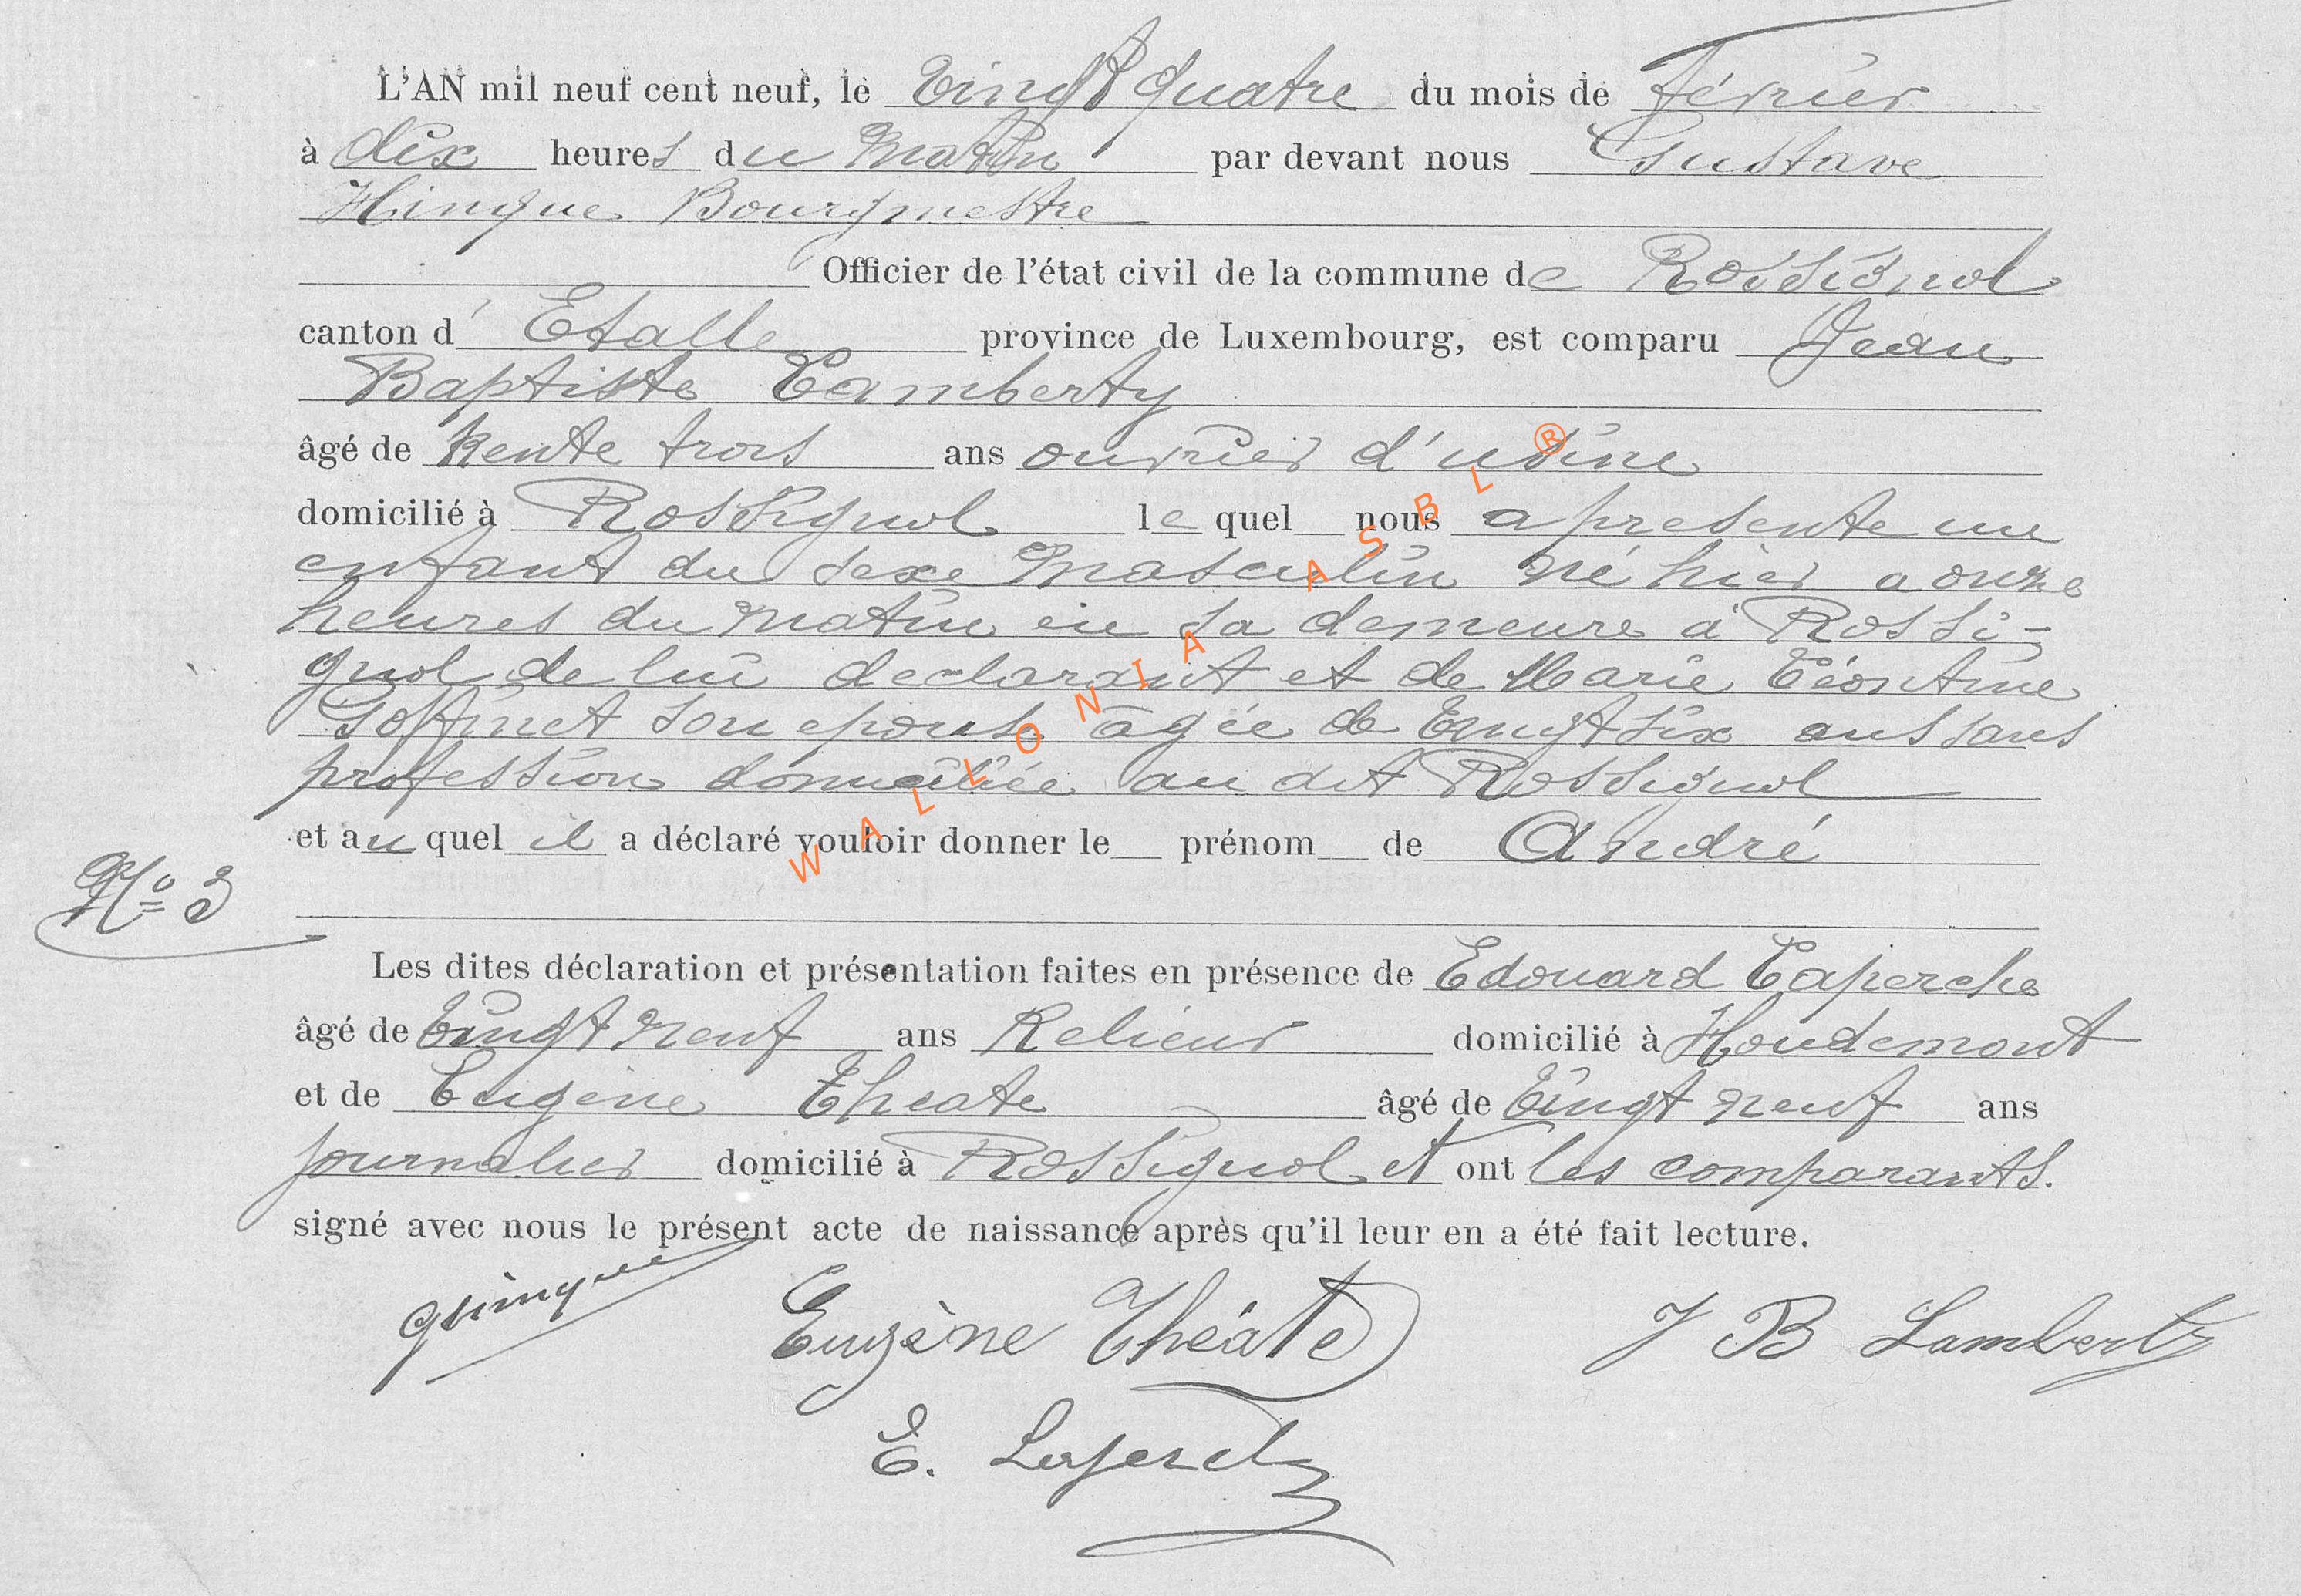 L'AN mil neuf cent neuf, le Vingt quatre du mois de février
à dix heures du matin par devant nous Gustave
Hinque Bourgmestre
Officier de l'état civil de la commune de Rossignol
canton d'Etalle province de Luxembourg, est comparu Jean
Baptiste Lamberty
âgé de trente trois ans ouvrier d'usine
domicilié à Rossignol le quel nous a presente un
enfant du sexe masculin né hier a onze
heures du matin en sa demeure à Rossi-
gnol de lui declarant et de Marie Léontine
Goffinet son epouse âgée de Vingt six ans sans
profession domiciliée au dit Rossignol
et au quel il a déclaré vouloir donner le prénom de André
N° 3
Les dites déclaration et présentation faites en présence de Edouard Laperche
âgé de Vingt neuf ans Relieur domicilié à Houdemont
et de Eugène Theate âgé de Vingt neuf ans
journalier domicilié à Rossignol et ont les comparants.
signé avec nous le présent acte de naissance après qu'il leur en a été fait lecture.
Eugène Théate J B Lamberty
E. Laperche
WALLONIA ASBL ®